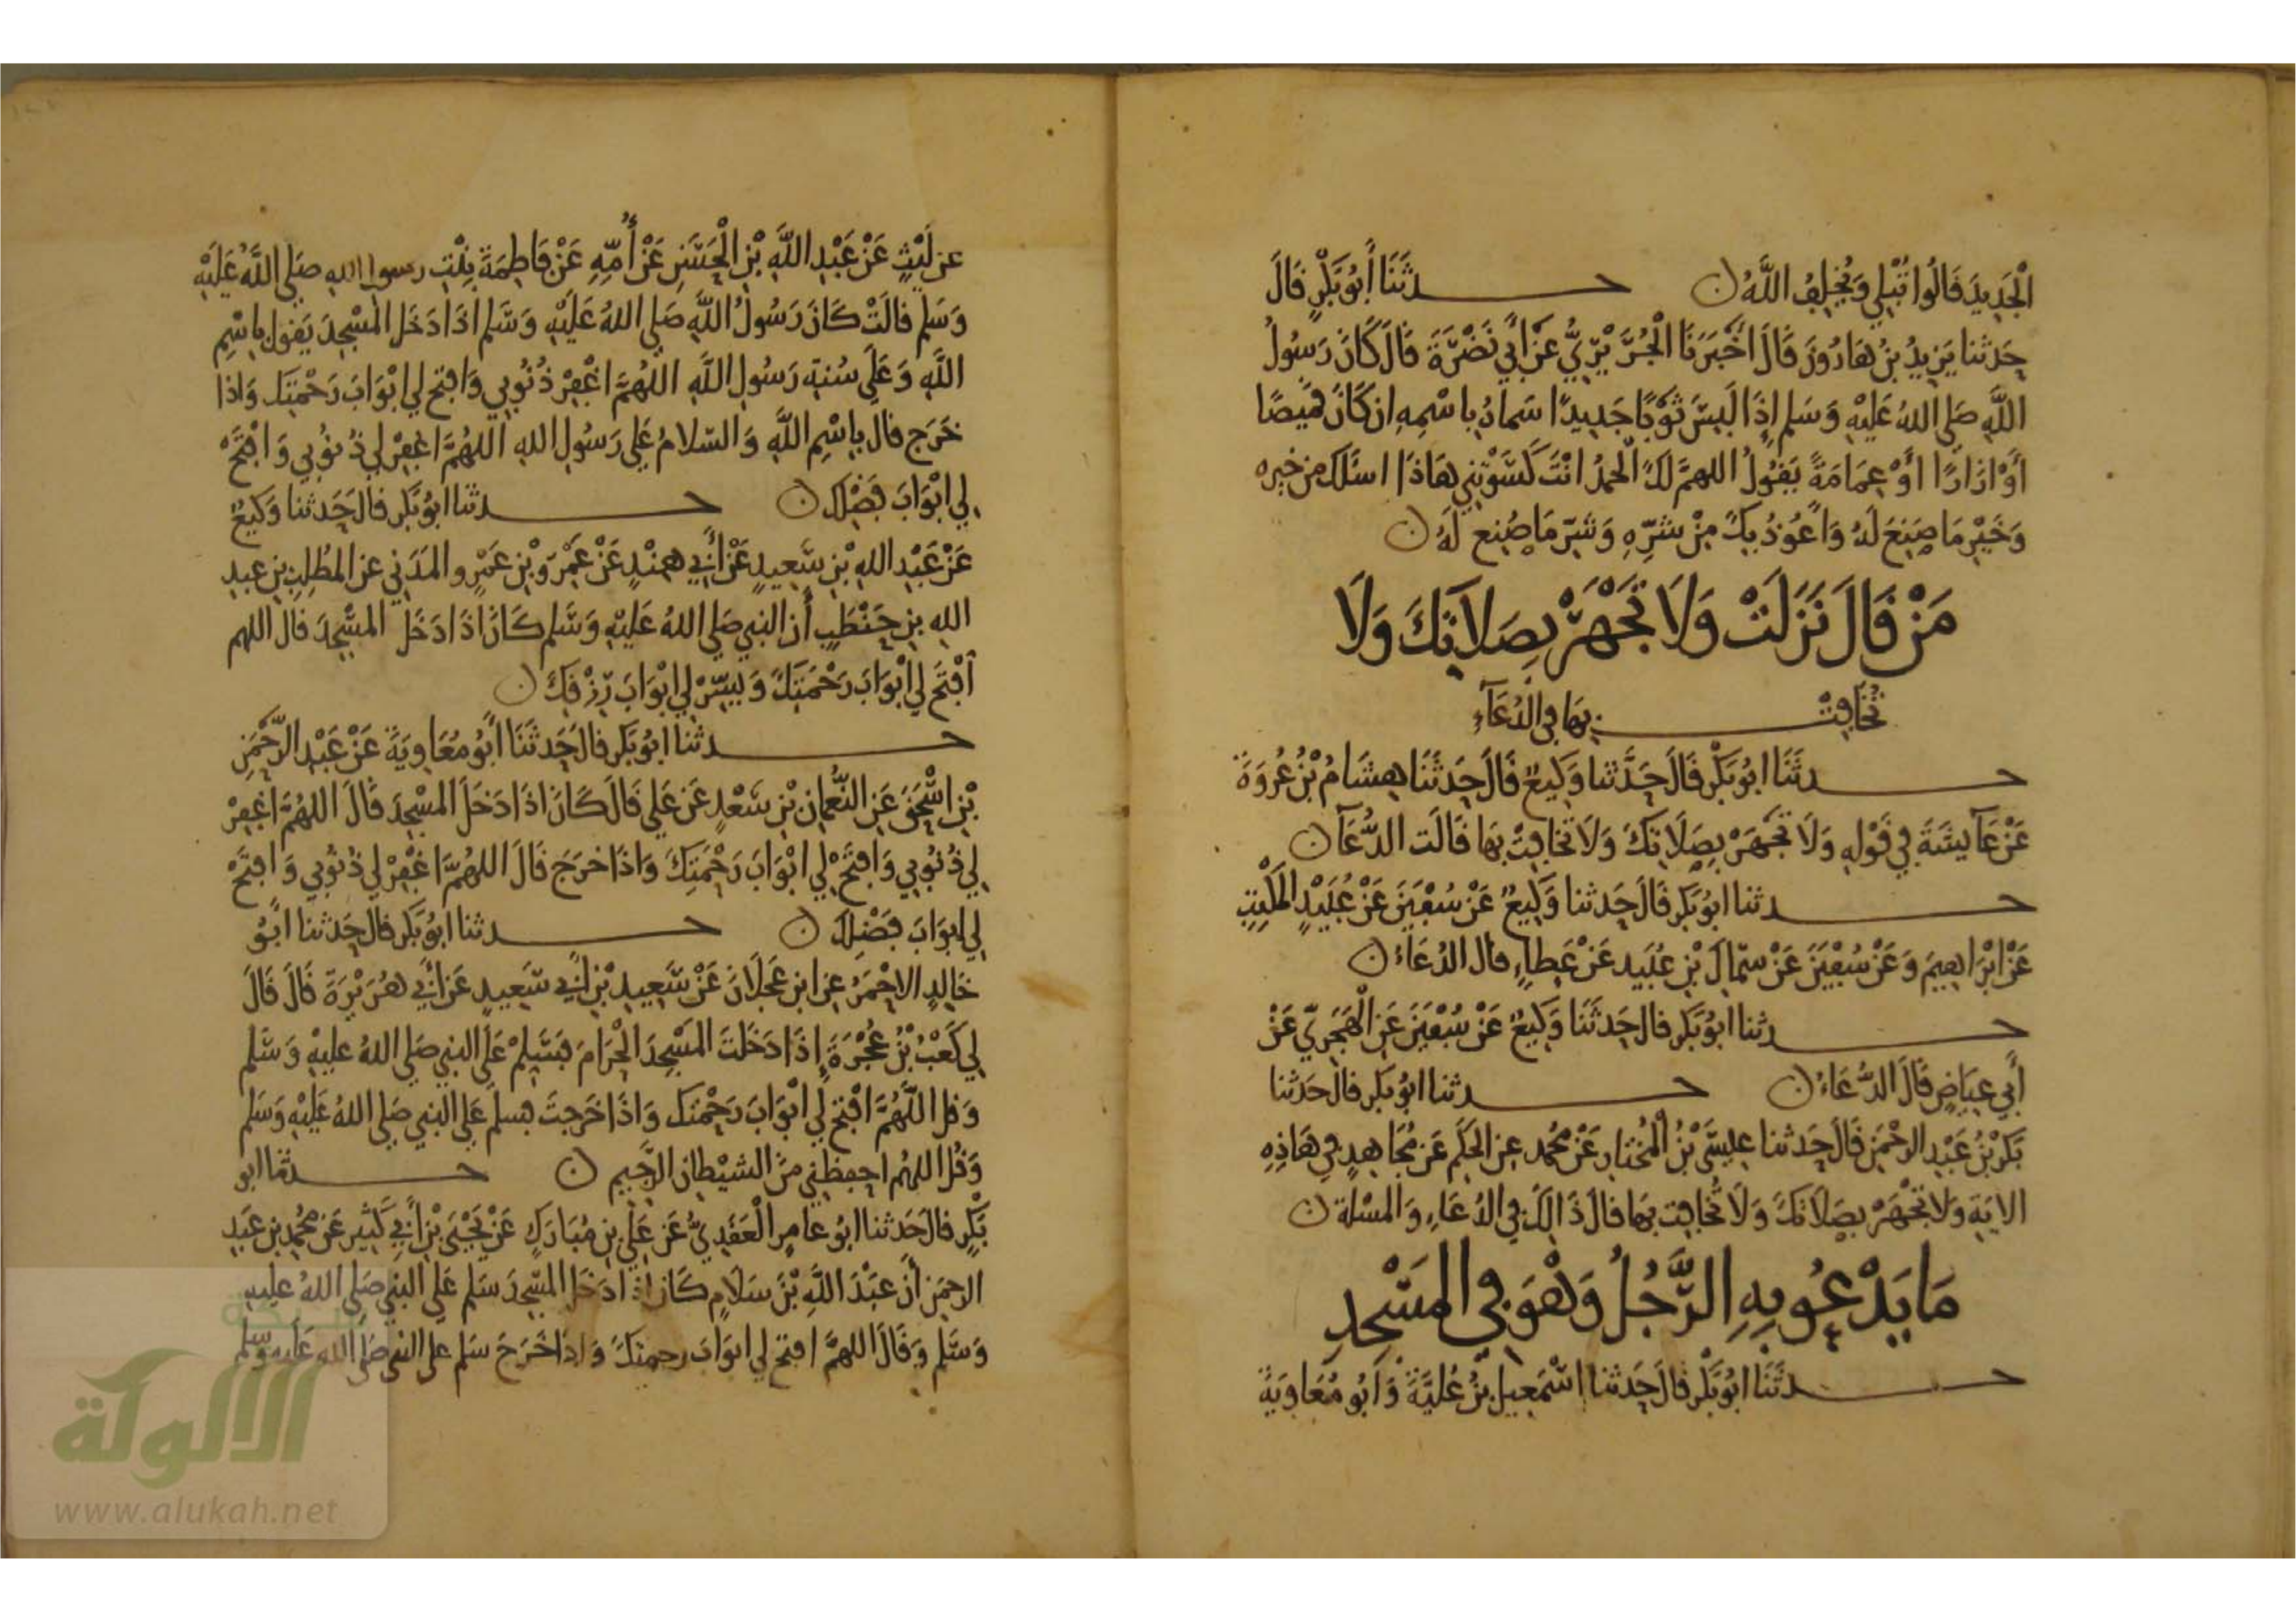 الْجَدِيدَ قَالُوا تُبْلِي وَيُخْلِفُ اللَّهُ ن حدثَنَا أَبُو بَكْرٍ قَالَ
حَدثنا يَزِيدُ بْنُ هَارُونَ قَالَ أَخْبَرَنَا الْجُرَيْرِيُّ عَنْ أَبِي نَضْرَةَ قَالَ كَانَ رَسُولُ
اللَّهِ صَلى اللهُ عَلَيْهِ وَسَلم إِذَا لَبِسَ ثَوْبًا جَدِيدًا سَماهُ بِاسْمِهِ ان كَانَ قَمِيصًا
أَوْ ازَارًا أَوْ عِمَامَةً يَقُولُ اللهمَّ لَكَ الْحَمدُ انْتَ كَسَوْتَنِي هَاذَا اسْئَلُكَ مِن خَيرِه
وَخَيْرِ مَا صُنِعَ لَهُ وَاعُوذُ بِكَ مِنْ شَرِّهِ وَشَرِّ مَا صُنِع لَهُ ن
مَنْ قَالَ نَزَلَتْ وَلَا تَجْهَرْ بِصَلَاتِكَ وَلَا
تُخَافِتْ بِهَا فِي الدُعَآءِ
حدثَنَا ابُو بَكْرٍ قَالَ حَدَّثنا وَكِيعٌ قَالَ حَدثَنَا هِشَامُ بْنُ عُرْوَةَ
عَنْ عَآيِشَةَ فِي قَوْلِهِ وَلَا تَجْهَرْ بِصَلَاتِكَ وَلَا تُخَافِتْ بِهَا قَالَت الدُّعَآ ن
حدثنا ابُو بَكر قَالَ حَدثنا وَكِيعٌ عَنْ سُفْيَنَ عَنْ عُبَيْدٍ الْمُكْتِبِ
عَنْ ابْرَاهِيمَ وَعَنْ سُفْيَنَ عَنْ سِمَاكِ بْنِ عُبَيد عَنْ عَطاءٍ قال الدُعَاءُ ن
حدثنا ابُو بَكر قال حَدثَنَا وَكِيعٌ عَنْ سُفْيَنَ عَنِ الْهَجَرِيّ عَنْ
أَبِي عِيَاضٍ قَالَ الدُّعَاءُ ن حدثنا ابُو بَكر قال حَدثنا
بَكرُ بْنُ عَبْدِ الرحْمَنِ قَالَ حَدثنا عِيسَى بْنُ الْمُخْتَارِ عَنْ مُحَمد عن الحَكَمِ عَن مُجَاهِدٍ في هَاذِهِ
الايَةِ وَلا تَجْهَرْ بِصَلَاتِكَ وَلَا تُخَافِت بِهَا قالَ ذَالِكَ فِي الدُعَاءِ وَالْمَسْلَة ن
مَا يَدْعُو بِهِ الرَّجُلُ وَهْوَ فِي الْمَسْجِدِ
حدثَنَا ابُو بَكْر قَالَ حَدثنا اسْمَعِيل بْنُ عُلَيَّةَ وَابُو مُعَاوِيَةَ
عن لَيْثٍ عَنْ عَبْدِ اللَّهِ بْنِ الْحَسَنِ عَنْ أُمِّهِ عَنْ فَاطِمَةَ بِنْتِ رسول الله صَلى اللَّهُ عَلَيْهِ
وَسَلم قَالَتْ كَانَ رَسُولُ اللَّهِ صَلى اللهُ عَلَيْهِ وَسَلم اذَا دَخَل الْمَسْجِدَ يَقول بِاسْمِ
اللَّهِ وَعَلَى سُنةِ رَسُولِ اللَّهِ اللهُمَّ اغْفِرْ ذُنُوبِي وَافتح لي ابْوَابَ رَحْمَتِكَ وَاذا
خَرَج قال بِاسْمِ اللَّهِ وَالسّلامُ عَلى رَسُولِ الله اللهُمَّ اغْفِرْ لِي ذُنُوبِي وَافْتَحْ
لِي ابْوَابَ فَضْلِكَ ن حدثنا ابُو بَكر قال حَدثنا وَكِيعٌ
عَنْ عَبْدِ اللهِ بْنِ سَعِيدٍ عَنْ أَبِي هِنْدٍ عَنْ عَمْرِو بْنِ عَمْرٍو المَدَنِي عن المُطلِبِ بن عبد
الله بن حَنْطَبٍ أن النبي صَلى اللهُ عَلَيْهِ وَسَلم كَانَ اذَا دَخَلَ المَسْجِدَ قال اللهم
افْتَح لِي ابْوَابَ رَحْمَتِكَ وَيَسِّرْ لِي ابْوَابَ رِزْقِكَ ن
حدثنا ابُو بَكر قال حَدثَنَا أَبُو مُعَاوِيَةَ عَنْ عَبْدِ الرَّحْمَنِ
بْنِ اسْحَقَ عَنِ النُّعْمانِ بْنِ سَعْدٍ عَن عَلي قَالَ كَانَ اذَا دَخَلَ المَسْجِدَ قَالَ اللهُمَّ اغْفِرْ
لِي ذُنُوبِي وَافْتَحْ لِي ابْوَابَ رَحْمَتِكَ وَاذَا خرَجَ قَالَ اللهُمَّ اغْفِرْ لِي ذُنُوبِي وَافْتَحْ
لِي ابوَابَ فَضْلِكَ ن حدثنا ابُو بَكر قال حَدثنا ابُو
خَالِدٍ الاحْمَرُ عن ابن عَجْلَانَ عَنْ سَعِيدِ بْنِ أَبِي سَعِيدٍ عَن أَبِي هُرَيْرَةَ قَالَ قَالَ
لِي كَعْبُ بْنُ عُجْرَةَ إِذَا دَخَلتَ المَسْجِدَ الْحَرَامَ فَسَلِّمْ عَلَى النبي صَلى اللهُ عليهِ وَسَلم
وَقل اللَّهُمَّ افْتح لي ابْوَابَ رَحْمَتِكَ وَاذَا خَرَجتَ فسلم عَلى النبي صَلى اللهُ عَلَيْهِ وَسَلم
وَقُل اللهُم احفظنِي مِنَ الشيْطان الرَّجِيمِ ن حدثنا ابو
بَكْرٍ قالَ حَدثنا ابُو عامِرٍ الْعَقَدِيُّ عَن عَلي بن مُبَارَكٍ عَنْ يَحْيَى بْنِ أَبِي كَثِيرٍ عَن مُحَمد بن عَبدِ
الرحمن أَنَّ عَبْدَ اللَّهِ بْنَ سَلامٍ كَانَ اذَا دَخَلَ المَسْجِدَ سَلم عَلى النبي صَلى اللهُ عليه
وَسَلم وَقَالَ اللهمَّ افتح لي ابوَابَ رحمتِكَ وَاذَا خَرَجَ سَلم على النبي صَلى الله عَليه وسلم
شبكة
الألوكة
www.alukah.net